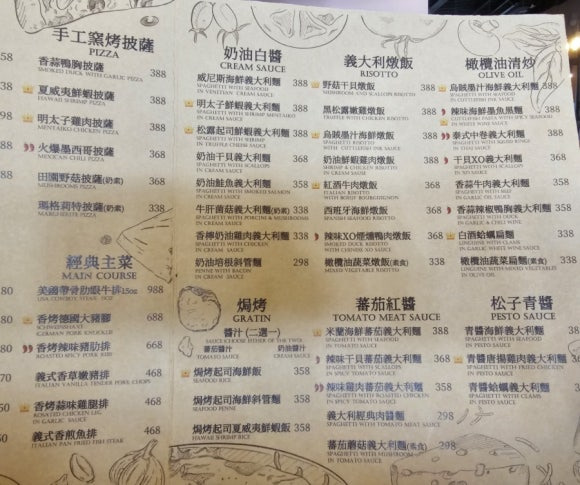 手工窯烤披薩
PIZZA
香蒜鴨胸披薩 388
SMOKED DUCK WITH GARLIC PIZZA
夏威夷鮮蝦披薩 388
HAWAII SHRIMP PIZZA
明太子雞肉披薩 388
MENTAIKO CHICKEN PIZZA
火爆墨西哥披薩 368
MEXICAN CHILI PIZZA
田園野菇披薩(奶素) 368
MUSHROOMS PIZZA
瑪格莉特披薩(奶素) 338
MARGHERITE PIZZA
經典主菜
MAIN COURSE
美國帶骨肋眼牛排15oz 988
USA COWBOY STEAK
香烤德國大豬腳 688
SCHWEINSHAXE
(GERMAN PORK KNUCKLE)
香烤辣味豬肋排 668
ROASTED SPICY PORK RIBS
義式香草嫩豬排 468
ITALIAN VANILLA TENDER PORK CHOPS
香烤蒜味雞腿排 468
ROASTED CHICKEN LEG
IN GARLIC SAUCE
義式香煎魚排 468
ITALIAN PAN FRIED FISH STEAK
奶油白醬
CREAM SAUCE
威尼斯海鮮義大利麵 388
SPAGHETTI WITH SEAFOOD
IN VENETIAN CREAM SAUCE
明太子鮮蝦義大利麵 388
SPAGHETTI WITH SHRIMP MENTAIKO
IN CREAM SAUCE
松露起司鮮蝦義大利麵 388
SPAGHETTI WITH SHRIMP
IN TRUFFLE CHEESE SAUCE
奶油干貝義大利麵 368
SPAGHETTI WITH SCALLOPS
IN CREAM SAUCE
奶油鮭魚義大利麵 358
SPAGHETTI WITH SMOKED SALMON
IN CREAM SAUCE
牛肝菌菇義大利麵(奶素) 338
SPAGHETTI WITH PORCINI & MUSHROOMS
IN CREAM SAUCE
香檸奶油雞肉義大利麵 338
SPAGHETTI WITH CHICKEN
IN CREAM SAUCE
奶油培根斜管麵 298
PENNE WITH BACON
IN CREAM SAUCE
焗烤
GRATIN
醬汁 (二選一)
SAUCE CHOOSE EITHER OF THE TWO
蕃茄醬汁 奶油白醬
TOMATO SAUCE CREAM SAUCE
焗烤起司海鮮飯 358
SEAFOOD RICE
焗烤起司海鮮斜管麵 358
SEAFOOD PENNE
焗烤起司夏威夷鮮蝦飯 358
HAWAII SHRIMP RICE
義大利燉飯
RISOTTO
野菇干貝燉飯 388
MUSHROOM AND SCALLOPS RISOTTO
黑松露嫩雞燉飯 388
TRUFFLE WITH CHICKEN RISOTTO
烏賊墨汁海鮮燉飯 388
SEAFOOD RISOTTO
WITH CUTTLEFISH INK SAUCE
奶油鮮蝦雞肉燉飯 388
SHRIMP & CHICKEN RISOTTO
IN CREAM SAUCE
紅酒牛肉燉飯 368
BEEF RISOTTO
WITH BOEUF BOURGUIGNON
西班牙海鮮燉飯 368
SPANISH SEAFOOD RISOTTO
辣味XO煙燻鴨肉燉飯 368
SMOKED DUCK RISOTTO
WITH CHINESE XO SAUCE
橄欖油蔬菜燉飯(素食) 338
MIXED VEGETABLE RISOTTO
蕃茄紅醬
TOMATO MEAT SAUCE
米蘭海鮮蕃茄義大利麵 388
SPAGHETTI WITH SEAFOOD
IN TOMATO SAUCE
辣味干貝蕃茄義大利麵 368
SPAGHETTI WITH SCALLOPS
IN SPICY TOMATO SAUCE
辣味雞肉蕃茄義大利麵 358
SPAGHETTI WITH ROASTED CHICKEN
IN SPICY TOMATO SAUCE
義大利經典肉醬麵 298
SPAGHETTI WITH MEAT
IN TOMATO SAUCE
蕃茄蘑菇義大利麵(素食) 298
SPAGHETTI WITH MUSHROOM
IN TOMATO SAUCE
橄欖油清炒
OLIVE OIL
烏賊墨汁海鮮義大利麵
SPAGHETTI WITH SEAFOOD
IN CUTTLEFISH INK SAUCE
辣味海鮮墨魚黑麵
CUTTLEFISH PASTA WITH SPICY SEAFOOD
IN WHITE WINE SAUCE
泰式中卷義大利麵
SPAGHETTI WITH SQUID RINGS
IN THAI SAUCE
干貝XO義大利麵
SPAGHETTI WITH SCALLOPS
IN XO SAUCE
香蒜牛肉義大利麵
SPAGHETTI WITH BEEF
IN GARLIC & OLIVE SAUCE
香蒜辣椒鴨胸義大利麵
SPAGHETTI WITH DUCK
IN GARLIC & CHILI WINE
白酒蛤蠣扁麵
LINGUINE WITH CLAMS
IN LIGHT WHITE WINE SAUCE
橄欖油蔬菜扁麵(素食)
LINGUINE WITH MIXED VEGETABLES
IN OLIVE OIL
松子青醬
PESTO SAUCE
青醬海鮮義大利麵
SPAGHETTI WITH SEAFOOD
IN PESTO SAUCE
青醬唐揚雞肉義大利麵
SPAGHETTI WITH FRIED CHICKEN
IN PESTO SAUCE
青醬蛤蠣義大利麵
SPAGHETTI WITH CLAMS
IN PESTO SAUCE